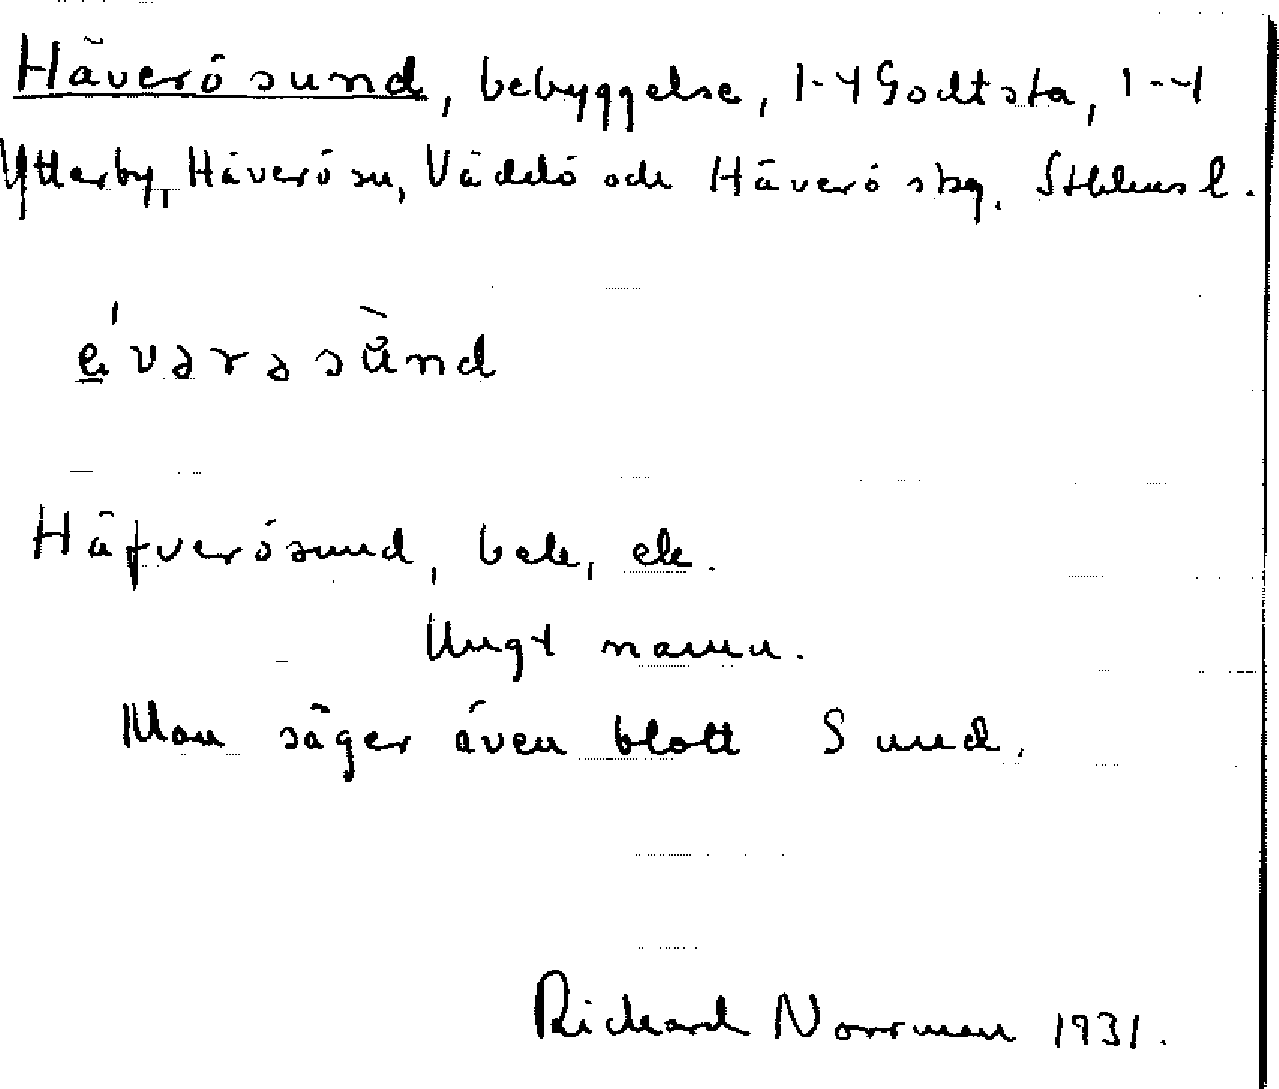 Häverösund, bebyggelse, 1-4 Godtsta, 1-4
Ytterby, Häverö sn, Väddö och Häverö skg. Sthlms l.
é̱vərəsùnd
Häfverösund, bek, ek.
Ungt namn.
Man säger även blott Sund.
Richard Norrman 1931.